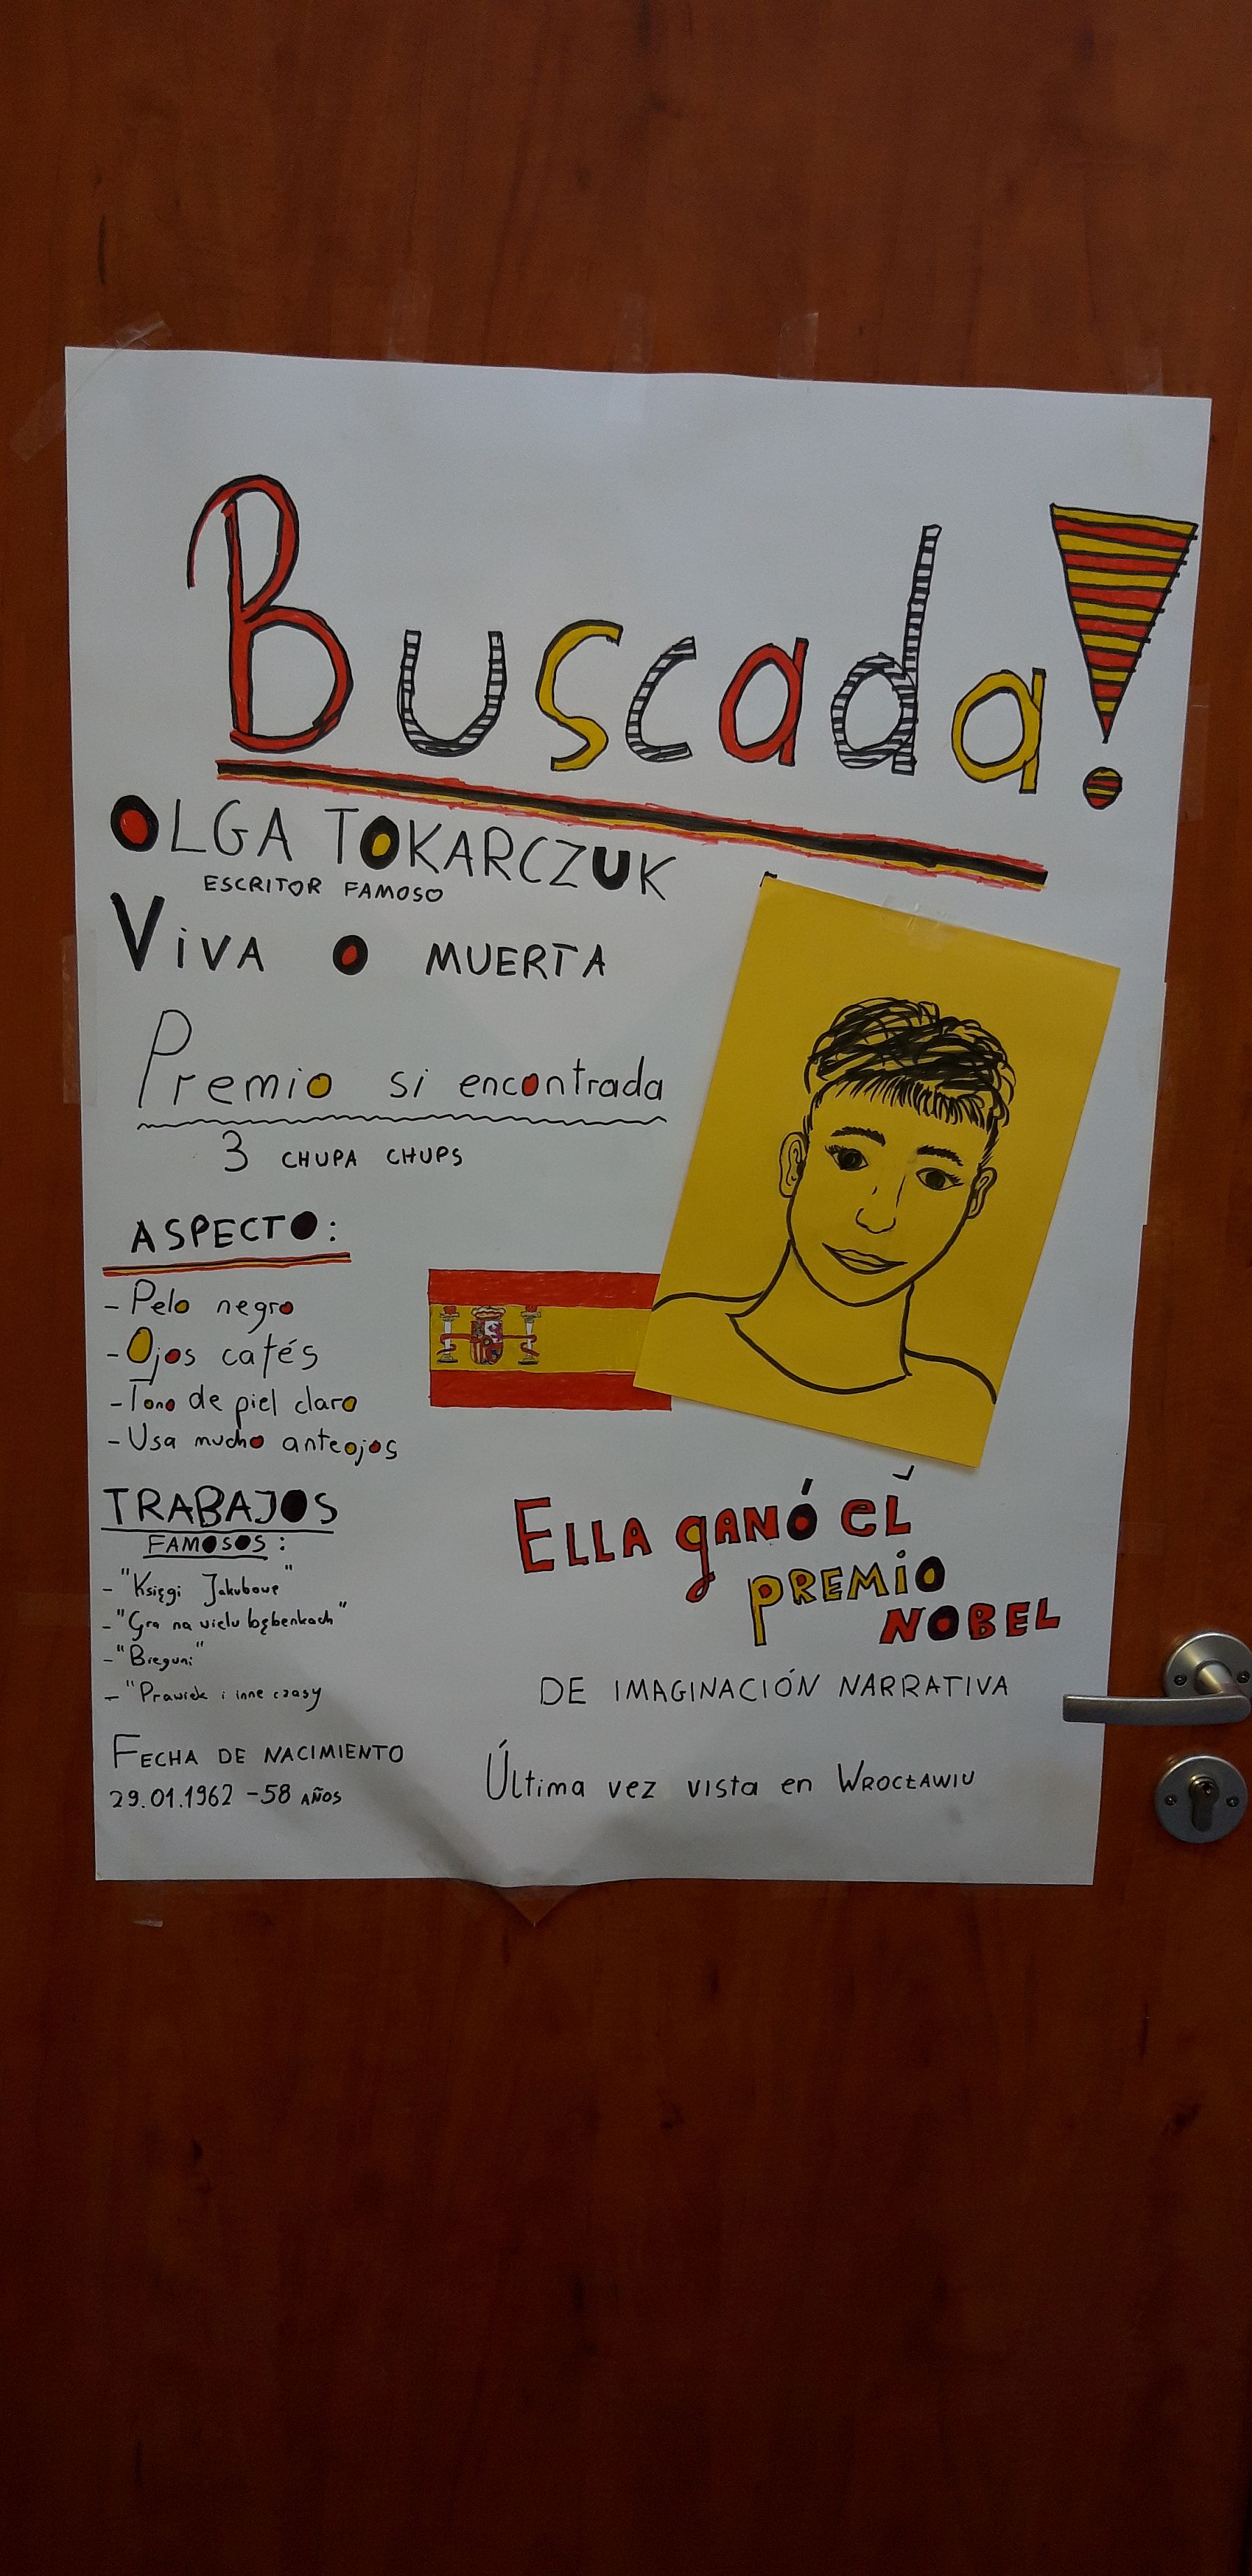 Buscada!
OLGA TOKARCZUK
ESCRITOR FAMOSO
ViVA O MUERTA
Premio si encontrada
3 CHUPA CHUPS
ASPECTO:
- Pelo negro
- Ojos cafés
- Tono de piel claro
- Usa mucho anteojos
TRABAJOS
FAMOSOS:
- "Księgi Jakubowe"
- "Gra na wielu bębenkach"
- "Bieguni"
- "Prawiek i inne czasy
FECHA DE NACIMIENTO
29.01.1962 - 58 AÑOS
ELLA gANÓ eL
PREMiO
NOBEL
DE IMAGINACIÓN NARRATIVA
Última vez vista en WROCŁAWIU